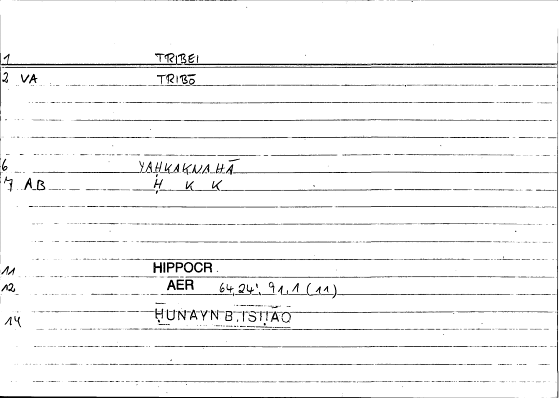 1 TRIBEI
2 VA TRIBŌ
6 YAḤKAKNAHĀ
7 AB Ḥ K K
11 HIPPOCR.
12 AER 64,24; 91,1 (11)
14 ḤUNAYN B. ISḤĀQ